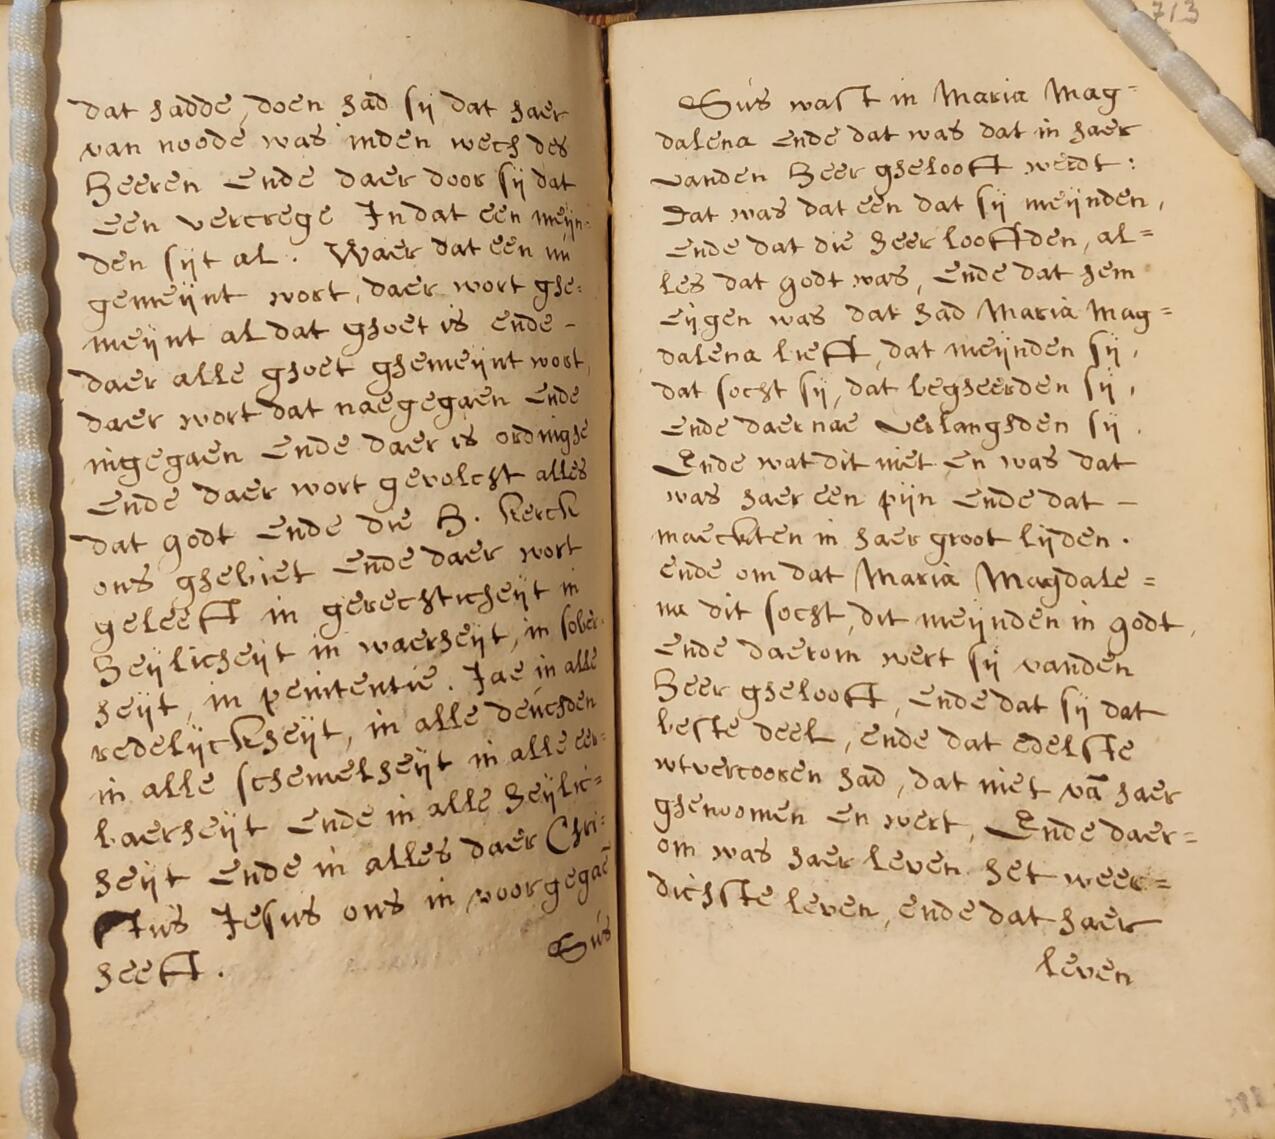 dat hadde, doen had sij dat haer
van noode was inden wech des
Heeren ende daer door sij dat
een vercrege In dat een meijn-
den sijt al. Waer dat een nu
gemeijnt wort, daer wort ghe-
meijnt al dat ghoet is ende -
daer alle ghoet ghemeijnt wort,
daer wort dat naegegaen ende
ingegaen ende daer is ordinghe
ende daer wort gevolcht alles
dat godt ende die H. kerck
ons ghebiet ende daer wort
geleeft in gerechticheijt in
heijlicheijt in waerheijt, in sober-
heijt, in penitentie. Jae in alle
redelijckheijt, in alle deuchden
in alle schemelheijt in alle eer-
baerheijt ende in alle heijlic-
heijt ende in alles daer Chri-
stus Jesus ons in voorgegaē
heeft.
Sus
713
Sus wast in Maria Mag-
dalena ende dat was dat in haer
vanden Heer ghelooft werdt:
Dat was dat een dat sij meijnden,
ende dat die heer loofden, al-
les dat godt was, ende dat hem
eijgen was dat had Maria Mag-
dalena lieft, dat meijnden sij,
dat socht sij, dat begheerden sij,
ende daer nae verlanghden sij.
Ende wat dit niet en was dat
was haer een pijn ende dat -
maeckten in haer groot lijden.
ende om dat Maria Magdale-
na dit socht, dit meijnden in godt,
ende daerom wert sij vanden
Heer ghelooft, ende dat sij dat
beste deel, ende dat edelste
wtvercooren had, dat niet vā haer
ghenoomen en wert, Ende daer-
om was haer leven het weer-
dichste leven, ende dat haer
leven